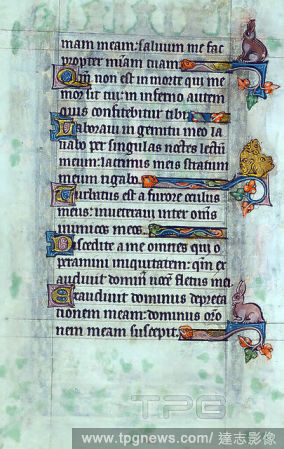 mam meam: saluum me fac
propter miam tuam.
Qm non est in morte qui me
mor sit tui: in inferno autem
quis confitebitur tibi.
Laboraui in gemitu meo la
uabo per singulas noctes lectū
meum: lacrimis meis stratum
meum rigabo.
Turbatus est a furore oculus
meus: inueteraui inter oms
inimicos meos.
Discedite a me omnes qui o
peramini iniquitatem: qm ex
audiuit domin uocē fletus mei
Exaudiuit dominus depreca
tionem meam: dominus oro
nem meam suscepit.
TPG
www.tpgnews.com/ 達志影像